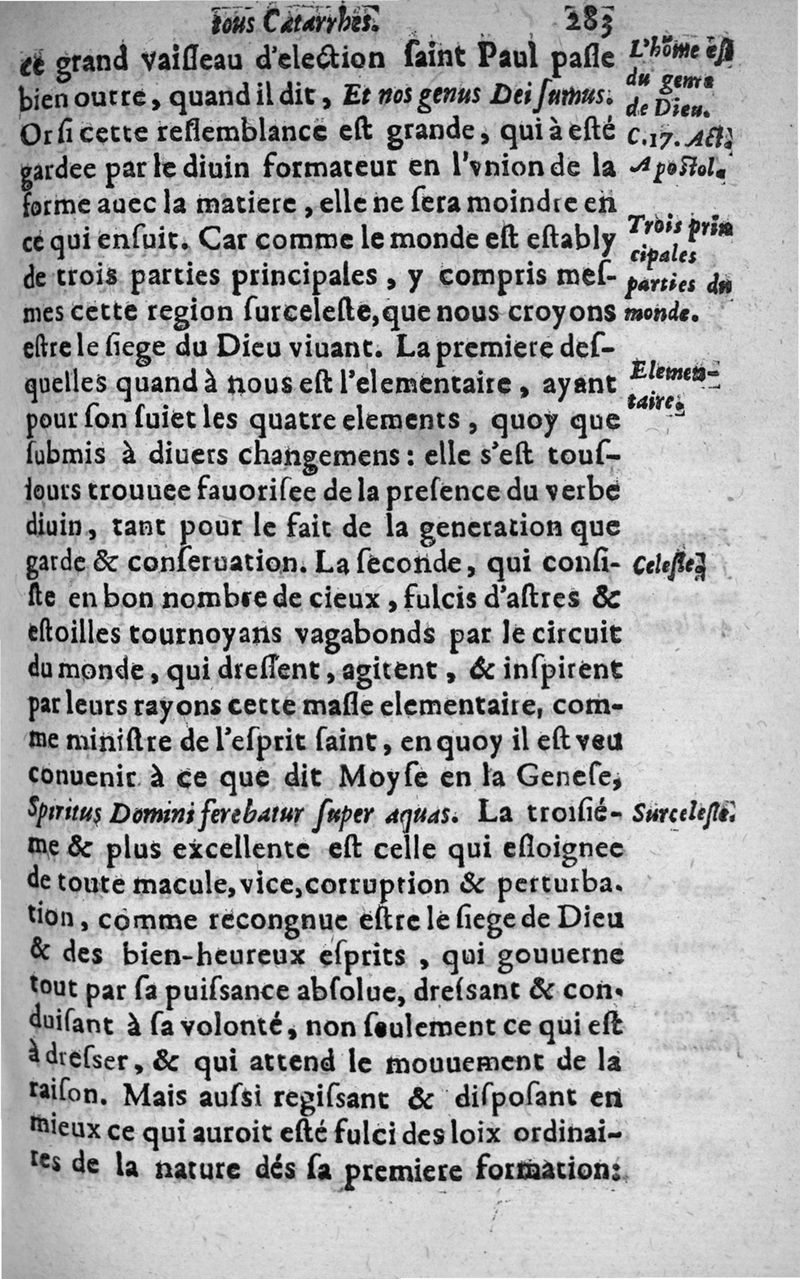 tous Catarrhes. 283
ce grand vaiſſeau d'election ſaint Paul paſſe
bien outre, quand il dit, Et nos genus Dei ſumus.
Or ſi cette reſſemblance eſt grande, qui à eſté
gardee par le diuin formateur en l'vnion de la
forme auec la matiere, elle ne ſera moindre en
ce qui enſuit. Car comme le monde eſt eſtably
de trois parties principales, y compris meſ-
mes cette region ſurceleſte, que nous croyons
eſtre le ſiege du Dieu viuant. La premiere deſ-
quelles quand à nous eſt l'elementaire, ayant
pour ſon ſuiet les quatre elements, quoy que
ſubmis à diuers changemens: elle s'eſt touſ-
iours trouuee fauoriſee de la preſence du verbe
diuin, tant pour le fait de la generation que
garde & conſeruation. La ſeconde, qui conſi-
ſte en bon nombre de cieux, fulcis d'aſtres &
eſtoilles tournoyans vagabonds par le circuit
du monde, qui dreſſent, agitent, & inſpirent
par leurs rayons cette maſſe elementaire, com-
me miniſtre de l'eſprit ſaint, en quoy il eſt veu
conuenir à ce que dit Moyſe en la Geneſe,
Spiritus Domini ferebatur ſuper aquas. La troiſié-
me & plus excellente eſt celle qui eſloignee
de toute macule, vice, corruption & perturba-
tion, comme recongnue eſtre le ſiege de Dieu
& des bien-heureux eſprits, qui gouuerne
tout par ſa puiſsance abſolue, dreſsant & con-
duiſant à ſa volonté, non ſeulement ce qui eſt
à dreſser, & qui attend le mouuement de la
raiſon. Mais auſsi regiſsant & diſpoſant en
mieux ce qui auroit eſté fulci des loix ordinai-
res de la nature dés ſa premiere formation:
L'hõme eſt
du genre
de Dieu.
C.17. Act.
Apoſtol.
Trois prin
cipales
parties du
monde.
Elemen-
taire.
Celeſte.
Surceleſte.